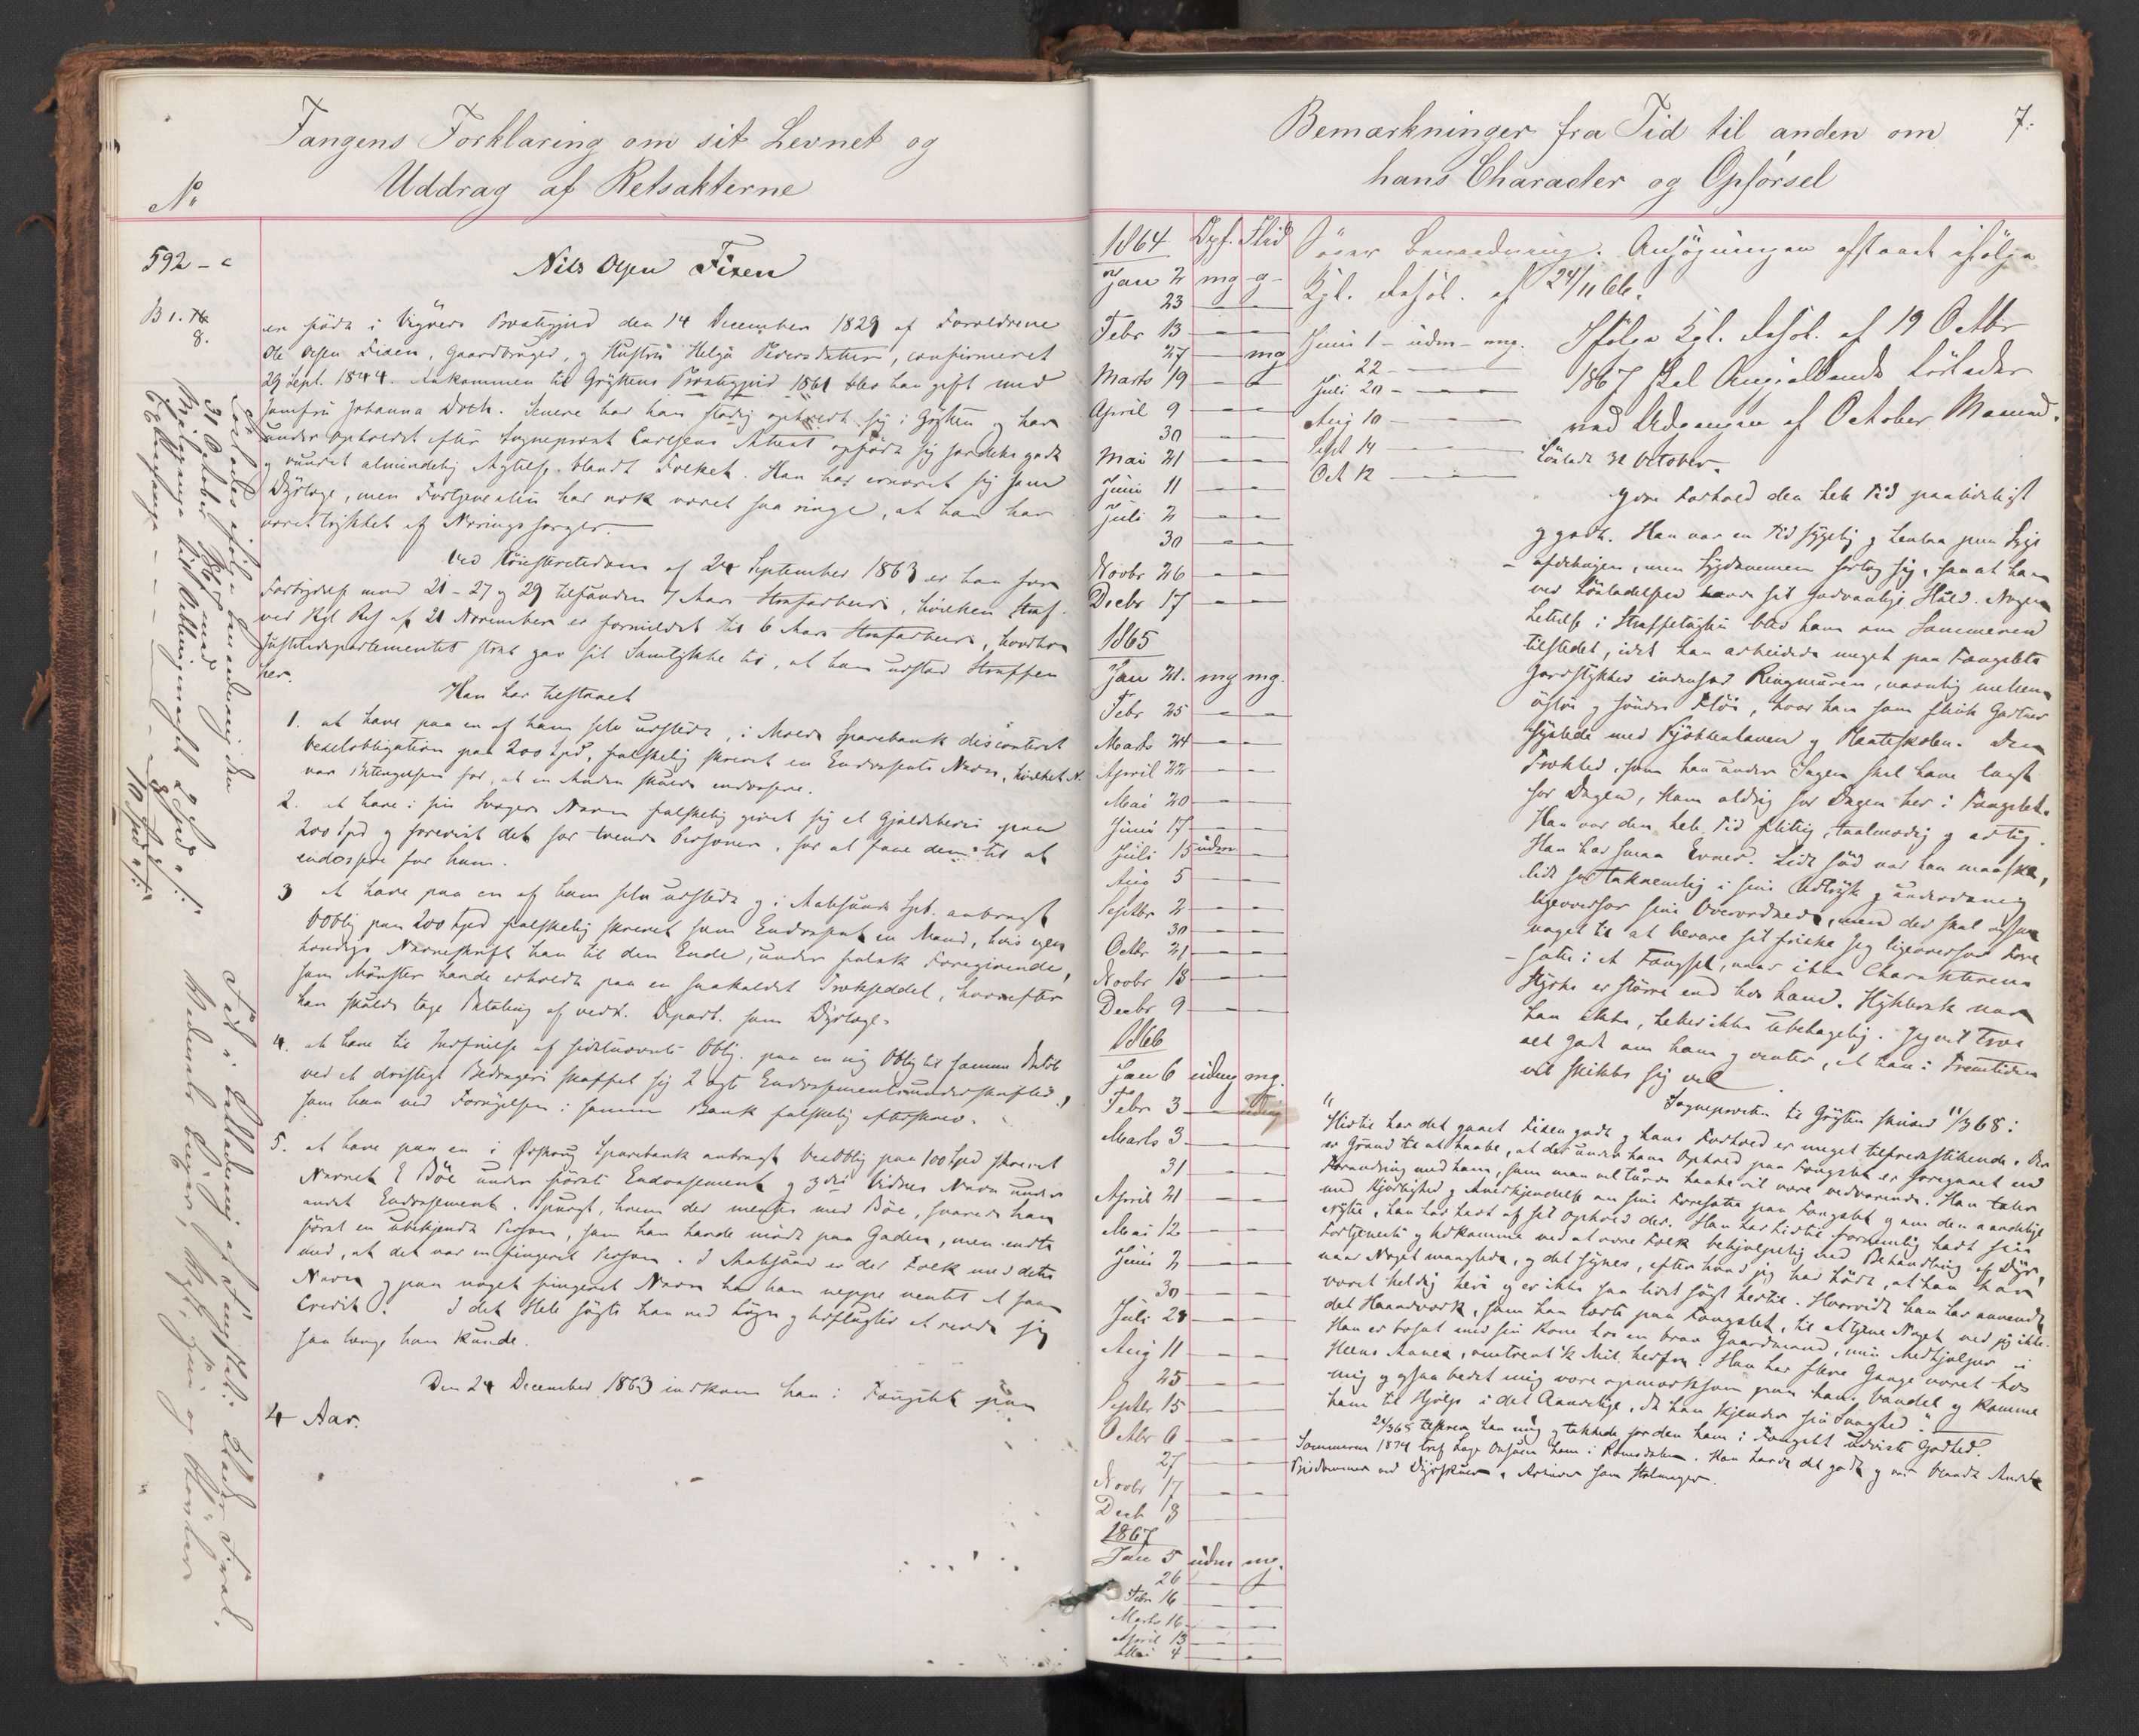 Fangens Forklaring om sit Levnet og
Uddrag af Retsakterne
No
592 - c
B 1. 76
8.
Nils Olsen Fixen
er født i Vigøers Præstegjeld den 14 December 1829 af Forældrene
Ole Olsen Fixen, Gaardbruger, og Hustru Helga Pedersdatter, confirmeret
29 Sept. 1844. Ankommen til Gryttens Præstegjeld 1861 blev han gift med
Jomfru Johanna Doch. Senere har han stadig opholdt sig i Grytten og har
under Opholdet efter Sogneprest Carlsens Attest opført sig særdeles godt
og vundet almindelig Agtelse blandt Folket. Han har ernæret sig som
Dyrlæge, men Fortjenesten har nok været saa ringe, at han har
været trykket af Næringssorger.
Ved Høiesteretsdom af 24 September 1863 er han for
Forbrydelse mod 21-27 og 29 tilfunden 7 Aars Strafarbeide, hvilken Straf
ved Kgl Res af 21 November er formildet til 6 Aars Strafarbeide, hvorhos
Justitsdepartementet strax gav sit Samtykke til, at han udstod Straffen
her.
Han har tilstaaet
1. at have paa en af ham selv udstedt, i Molde Sparebank disconteret
Vexelobligation paa 200 Spd, falskelig skrevet en Endossents Navn, hvilket N.
var Betingelsen for, at en Anden skulde endossere.
2. at have i sin Svogers Navn falskelig givet sig et Gjældsbevis paa
200 Spd og forevist det for trende Personer, for at faae dem til at
endossere for ham.
3 at have paa en af ham selv udstedt og i Aalesunds Spb. anbragt
VOblig paa 200 Spd falskelig skrevet som Endossent en Mand, hvis egen
hændige Navneskrift han til den Ende, under falsk Foregivende,
som Mønster havde erholdt paa en saakaldet Trækseddel, hvorefter
han skulde tage Betaling af vedk. Depart. som Dyrlæge.
4. at have til Indfrielse af sidstnævnte Oblig. paa en ny Oblig til samme Beløb
ved et dristigt Bedrageri skaffet sig 2 ægte Endossementsunderskrifter,
som han ved Fornyelsen i samme Bank falskelig efterskrev.
5. at have paa en i Ørskoug Sparebank anbragt VexOblig paa 100 Spd skrevet
Navnet E Böe under første Endossement og 3die Vidnes Navn under
andet Endossement. Spurgt, hvem der mentes med Böe, svarede han
først en ubekjendt Person, som han havde mødt paa Gaden, men endte
med, at det var en fingeret Person. I Aalesund er der Folk med dette
Navn og paa noget fingeret Navn har han neppe ventet at faae
Credit. I det Hele søgte han ved Løgn og Udflugter at redde sig
saa længe han kunde.
Den 24 December 1863 indkom han i Fængslet paa
4 Aar.
Løslades ifølge Benaadning den
31 October 1867 med
Bemærkninger fra Tid til anden om
hans Character og Opførsel
7.
1864 Opf. Flid
Jan 2 mg g
23 — —
Febr 13 — —
27 — mg
Marts 19 — —
April 9 — —
30 — —
Mai 21 — —
Juni 11 — —
Juli 2 — —
30 — —
Novbr 26 — —
Decbr 17 — —
1865
Jan 21. mg mg.
Febr 25 — —
Marts 24 — —
April 22 — —
Mai 20 — —
Juni 17 — —
Juli 15 udm —
Aug 5 — —
Septbr 2 — —
30 — —
Octbr 21 — —
Novbr 18 — —
Decbr 9 — —
1866
Jan 6 udm mg.
Febr 3 —
Marts 3 — —
31 — —
April 21 — —
Mai 12 — —
Juni 2 — —
30 — —
Juli 28 — —
Aug 11 — —
25 — —
Septbr 15 — —
Octbr 6 — —
27 — —
Novbr 17 — —
Decb 8 — —
1867
Jan 5 udm mg.
26 — —
Febr 16 — —
Marts 16 — —
April 13 — —
Mai 4 — —
Søger Benaadning. Ansøgningen afslaaet ifølge
Kgl. Resol. af 24/11 66.
Juni 1 - udm - mg.
22
Juli 20
Aug 10
Sept 14
Oct 12
Ifølge Kgl. Resol. af 19 Octbr
1867 skal Angjældende løslades
ved Udgangen af October Maaned.
Løsladt 31 October.
Hans Forhold den hele Tid paalideligt
og godt. Han var en Tid sygelig og henlaa paa Syge
- afdelingen, men Sygdommen fortog sig, saa at han
ved Løsladelsen havde sit sædvanlige Huld. Nogen
Lettelse i Straffetiden blev ham om Sommeren
tilstedet, idet han arbeidede meget paa Fængslets
Jordstykker indenfor Ringmuren, navnlig mellem
østre og søndre Fløi, hvor han som flink Gartner
sysslede med Kjøkkenhaven og Planteskolen. Den
Frækhed, som han under Sagen skal have lagt
for Dagen, kom aldrig for Dagen her i Fængslet.
Han var den hele Tid flittig, taalmodig og artig.
Han har smaa Evner. Lidt sød var han maaske,
lidt for taknemlig i sine Udtryk og underdanig
ligeoverfor sine Overordnede, men der skal ogsaa
noget til at bevare sit friske Jeg ligeoverfor Fore
- satte i et Fængsel, naar ikke Charakterens
Styrke er større end hos ham. Hyklersk var
han ikke, heller ikke ubehagelig. Jeg vil troe
alt godt om ham og venter, at han i Fremtiden
vil skikke sig vel
Sognepresten til Grytten skriver 11/3 68:
"Hidtil har det gaaet Fixen godt og hans Forhold er meget tilfredsstillende. Der
er Grund til at haabe, at der under hans Ophold paa Fængslet er foregaaet en
Forandring med ham, som man vel turde haabe vil være vedvarende. Han taler
med Kjærlighed og Anerkjendelse om sine Foresatte paa Fængslet og om den aandelige
Nytte, han har havt af sit Ophold der. Han har hidtil fornemlig havt sin
Fortjeneste og Udkomme ved at være Folk behjælpelig med Behandling af Dyr,
naar Noget manglede, og det synes, efter hvad jeg har hørt, at han har
været heldig heri og er ikke saa lidet søgt hertil. Hvorvidt han har anvendt
det Haandværk, som han lærte paa Fængslet, til at tjene Noget ved jeg ikke.
Han er bosat med sin Kone hos en brav Gaardmand, min Medhjælper i
Heens Annex, omtrent 1/2 Mil herfra. Han har flere Gange været hos
mig og ogsaa bedet mig være opmærksom paa hans Vandel og komme
ham til Hjælp i det Aandelige, da han kjender sin Svaghed."
24/3 65 tilskrev han mig og takkede for den ham i Fængslet udviste Godhed.
Sommeren 1874 traf ham i Romsdalen. Han havde det godt og var blandt Andet
Prisdommer ved Dyrskuer.